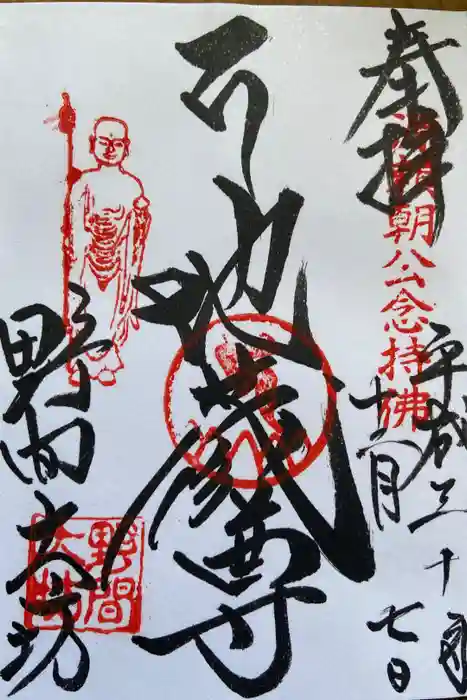 奉拝
源頼朝公念持佛
平成三十年
月
七日
地蔵尊
野間大坊
野間大坊